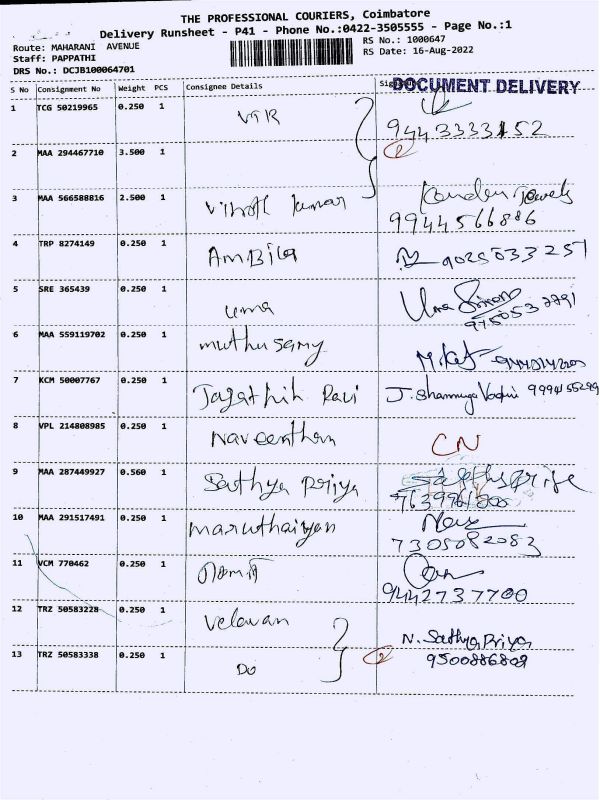 THE PROFESSIONAL COURIERS, Coimbatore
Delivery Runsheet - P41 - Phone No.:0422-3505555 - Page No.:1
Route: MAHARANI AVENUE
RS No.: 1000647
Staff: PAPPATHI
RS Date: 16-Aug-2022
DRS No.: DCJB100064701
S No Consignment No Weight PCS Consignee Details
DOCUMENT DELIVERY
1 TCG 50219965 0.250 1 VGR
2 MAA 294467710 3.500 1
3 MAA 566588816 2.500 1 Kumar
9944566886
4 TRP 8274149 0.250 1 AMBIGA 9025033251
5 SRE 365439 0.250 1 uma Uma
6 MAA 559119702 0.250 1 muthu samy
7 KCM 50007767 0.250 1 Ravi J. Shanmuga
8 VPL 214808985 0.250 1 Naveenthan CN
9 MAA 287449927 0.560 1 Sathya Priya
10 MAA 291517491 0.250 1 maruthaiyan
7305082083
11 VCM 770462 0.250 1
9442737700
12 TRZ 50583228 0.250 1 Velavan N. Sathya Priya
13 TRZ 50583338 0.250 1 Do 9500886809